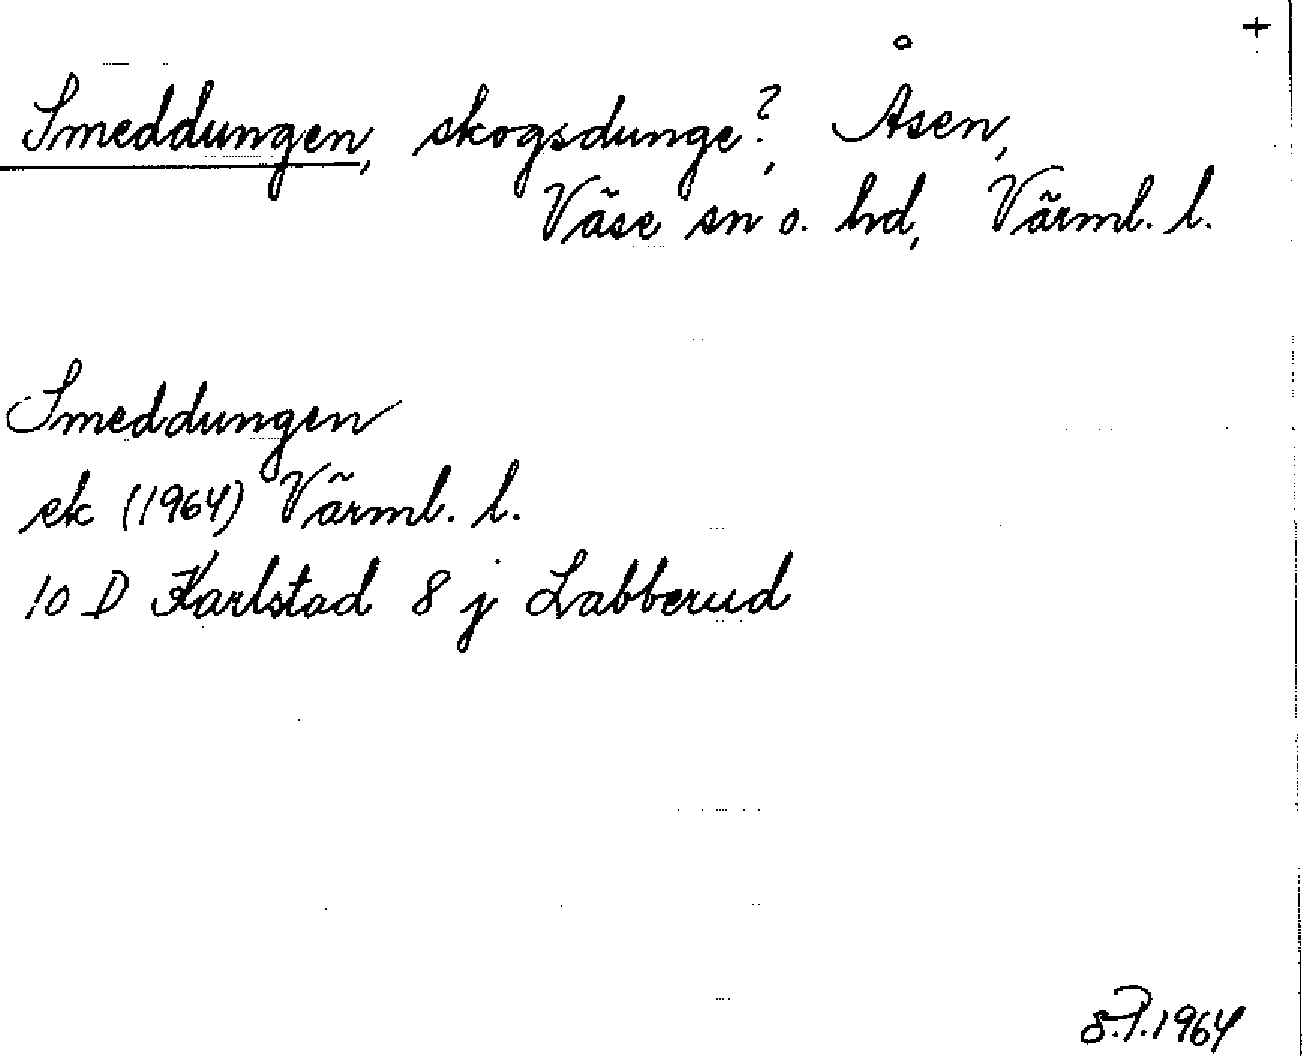 +
Smeddungen, skogsdunge?, Åsen,
Väse sn o. hd, Värml. l.
Smeddungen
ek (1964) Värml. l.
10 D Karlstad 8 j Labberud
1964